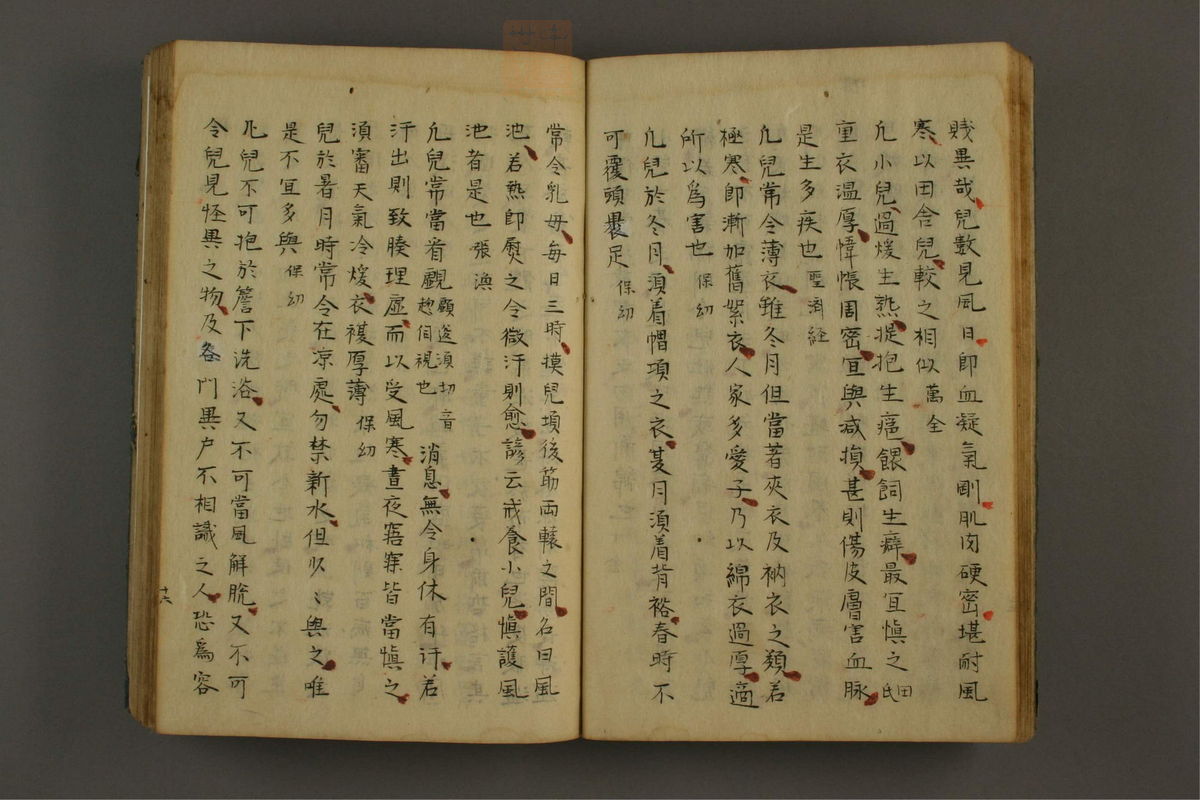 賎異哉兒數見風日即血凝氣剛肌肉硬密堪耐風
寒以田舍兒較之相似 萬全
凢小兒過煖生熱提抱生㾴餵飼生癖最宜慎之 田氏
重衣温厚幃帳周密宜與减損甚則傷皮膚害血脉
是生多疾也 聖濟経
凢兒常令薄衣雖冬月但當著夾衣及衲衣之類若
極寒即漸加舊絮衣人家多愛子乃以綿衣過厚適
所以爲害也 保幼
凢兒於冬月湏着帽項之衣夏月湏着背褡春時不
可覆頭褁足 保幼
常令乳母每日三時摸兒項後筋兩轅之間名曰風
池若熱即熨之令微汗則愈諺云戒養小兒慎護風
池者是也 張渙
凢兒常當看覷 顧邃湏切音 揔伺視也 消息無令身体有汗若
汗出則致腠理虛而以受風寒晝夜寤寐皆當慎之
湏審天氣冷煖衣複厚薄 保幼
兒於暑月時常令在凉處勿禁新水但少〻與之唯
是不宜多與 保幼
凢兒不可抱於簷下洗浴又不可當風解脫又不可
令兒見怪異之物及各門異户不相識之人恐爲容
十六